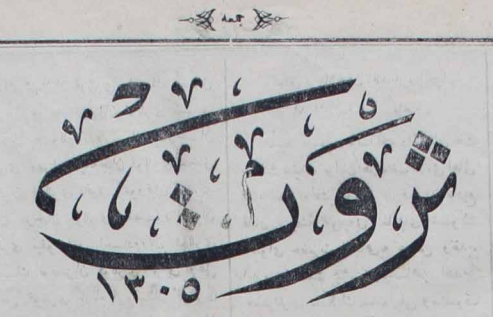 جمعه
ثروت
١٣٠٥